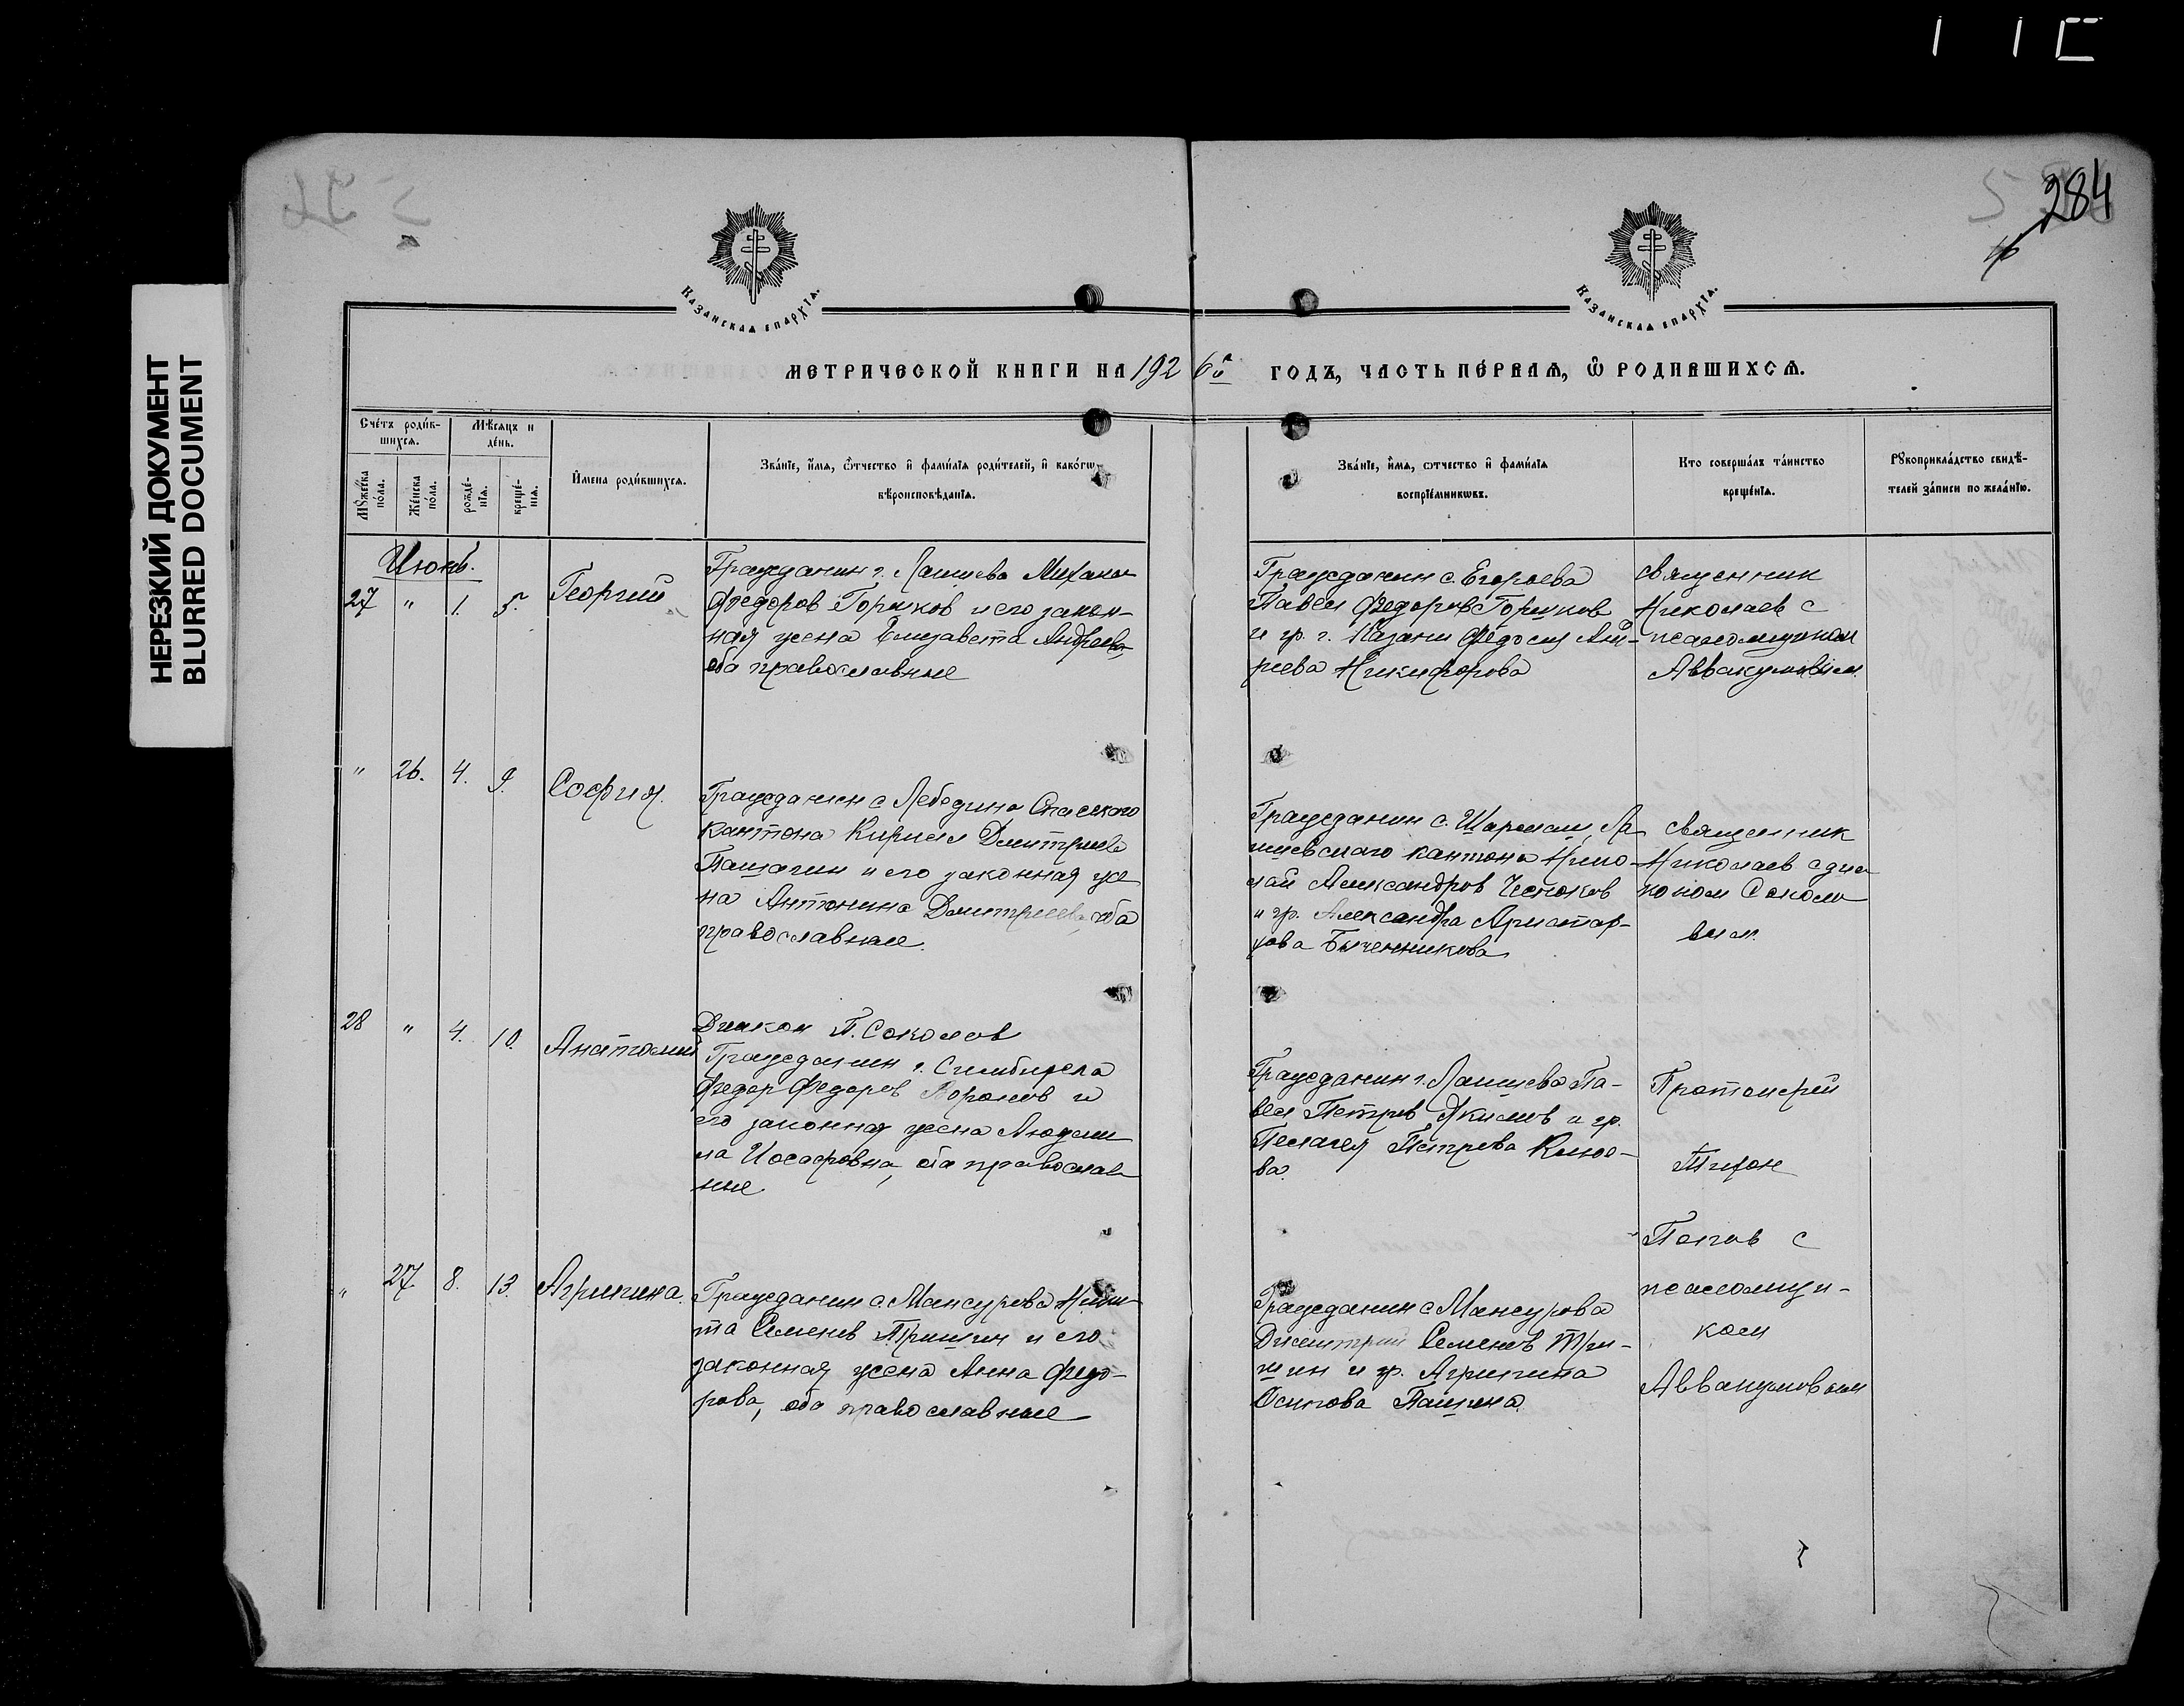 НЕРЕЗКИЙ ДОКУМЕНТ
BLURRED DOCUMENT
284
Казанская епархїа.
Казанская епархїа.
МЕТРИЧЕСКОЙ КНИГИ НА 1926й ГОДЪ, ЧАСТЬ ПЕ́РВАѦ, Ѿ РОДИВШИХСѦ.
Сче́тъ роди́в-
шихсѧ.
Мѣ́сѧцъ и
де́нь.
Мꙋ́жеска
по́ла.
Же́нска
по́ла.
рожде́-
нїѧ.
креще́-
нїѧ.
И҆мена роди́вшихсѧ.
Зва́нїе, и҆́мѧ, ѻ҆́тчество и҆ фами́лїѧ роди́телей, и҆ како́гѡ
вѣроисповѣ́данїѧ.
Зва́нїе, и҆́мѧ, ѻ҆тчество и҆ фами́лїѧ
воспрїе́мникѡвъ.
Кто соверша́лъ та́инство
креще́нїѧ.
Рꙋкоприкла́дство свидѣ́-
телей за́писи по жела́нїю.
Июнь.
27 " 1. 5. Георгий
Гражданин г. Лаишева Михаил
Федоров Горшков и его закон-
ная жена Елизавета Андреева,
оба православные
Гражданин с. Егорьева
Павел Федоров Горшков
и гр. г. Казани Федосия Анд-
реева Никифорова
священник
Николаев с
псаломщиком
Аввакумовым.
" 26. 4. 9. София.
Гражданин с Лебедина Спасского
кантона Кирилл Дмитриев
Пашагин и его законная же
на Антонина Дмитриева, оба
православные.
Гражданин с. Шармаши Ла
ишевского кантона Нико-
лай Александров Чесноков
и гр. Александра Аристар-
хова Быченникова
священник
Николаев с диа
коном Соколо
вым.
Диакон П. Соколов
28 " 4. 10. Анатолий
Гражданин г. Симбирска
Федор Федоров Воронов и
его законная жена Людми
ла Иосафовна, оба православ
ные
Гражданин г. Лаишева Па-
вел Петров Якимов и гр.
Пелагея Петрова Клюе-
ва.
Протоиерей
Тихон
Попов с
псаломщи-
ком
Аввакумовым
" 27. 8. 13. Агрипина.
Гражданин с. Мансурова Ники
та Семенов Тришин и его
законная жена Анна Федо-
рова, оба православные
Гражданин с Мансурова
Димитрий Семенов Три-
шин и гр. Агрипина
Осипова Пашина.